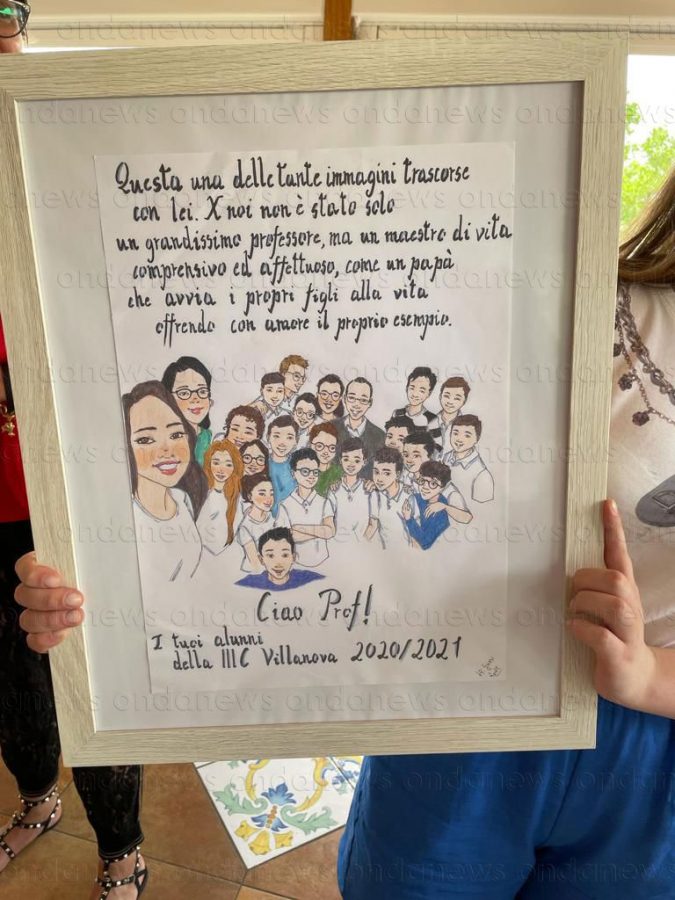 Questa una delle tante immagini trascorse
con lei. X noi non è stato solo
un grandissimo professore, ma un maestro di vita
comprensivo ed affettuoso, come un papà
che avvia i propri figli alla vita
offrendo con amore il proprio esempio.
Ciao Prof!
I tuoi alunni
della IIIC Villanova 2020/2021
ondanews